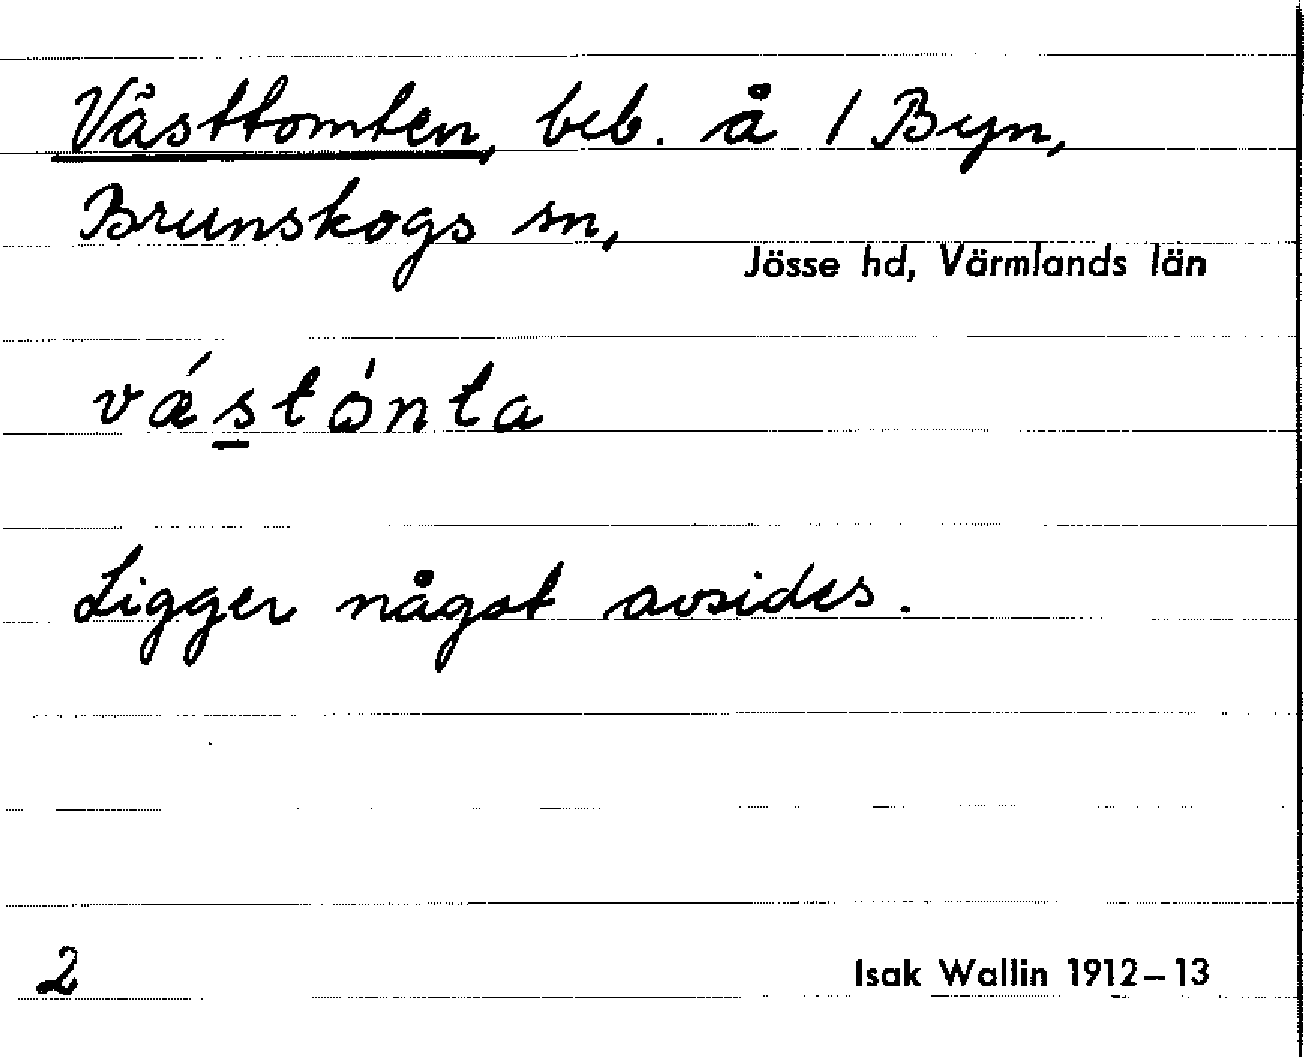 Västtomten, beb. å 1 Byn,
Brunskogs sn,
Jösse hd, Värmlands län
vǽs̲tǫ́nta
Ligger något avsides.
2
Isak Wallin 1912–13